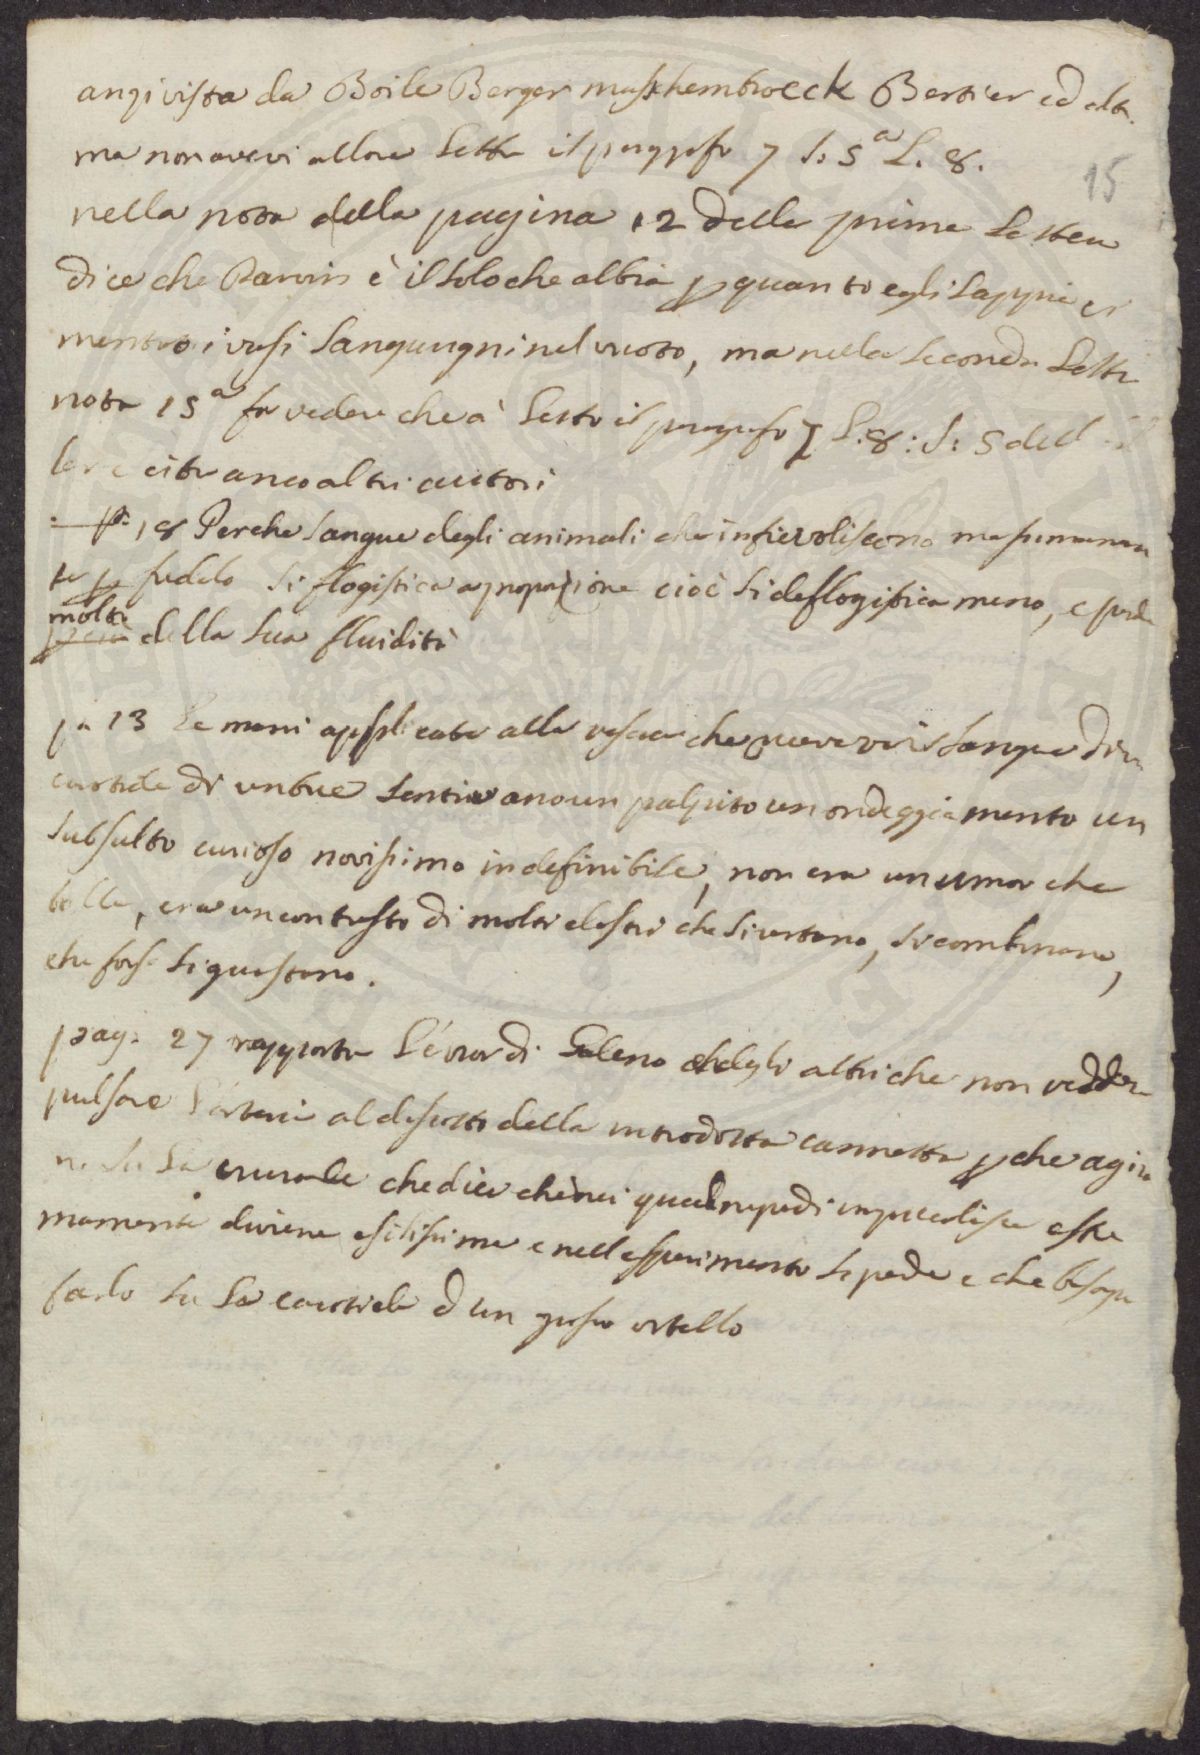 anzi vista da Boile Berger muskhembroeck Bertier ed altr.
ma non avevi allora letto il paragrafo 7 S. 5a L. 8.
15
nella nota della pagina 12 della prima Lettera
dice che Darwin è il solo che abbia p quanto egli sappia
mentato i vasi sanguugni nel vuoto, ma nella seconda Lette
nota 15a fa vedere che à letto il paragrafo 7 L. 8: S: 5 dell
cita anco altri autori
18 Perche sangue degli animali che infievoliscono massimamen
te p si flogistica a proporzione cioè si deflogistica meno, e perde
molto
della sua fluidità
pa 13 Le mani applicate alla vescica che riceveva il sangue d'una
carotide di un bue sentivano un palpito un ondeggiamento un
subsulto curioso novissimo indefinibile, non era un umor che
bolle, era un contrasto di molti elastri che si urtano, si combinano,
che forse si guastano.
pag: 27 rapporta l'éror di Galeno e degli altri che non vedder
pulsare l'arteria al disotto della introdotta cannetta p che agiro
no su la crurale che dice che nei quadrupedi impicciolisce estre
mamente diviene esilissima e nell esperimento si perde e che bisogn
farlo su la carotide d un grosso vitello